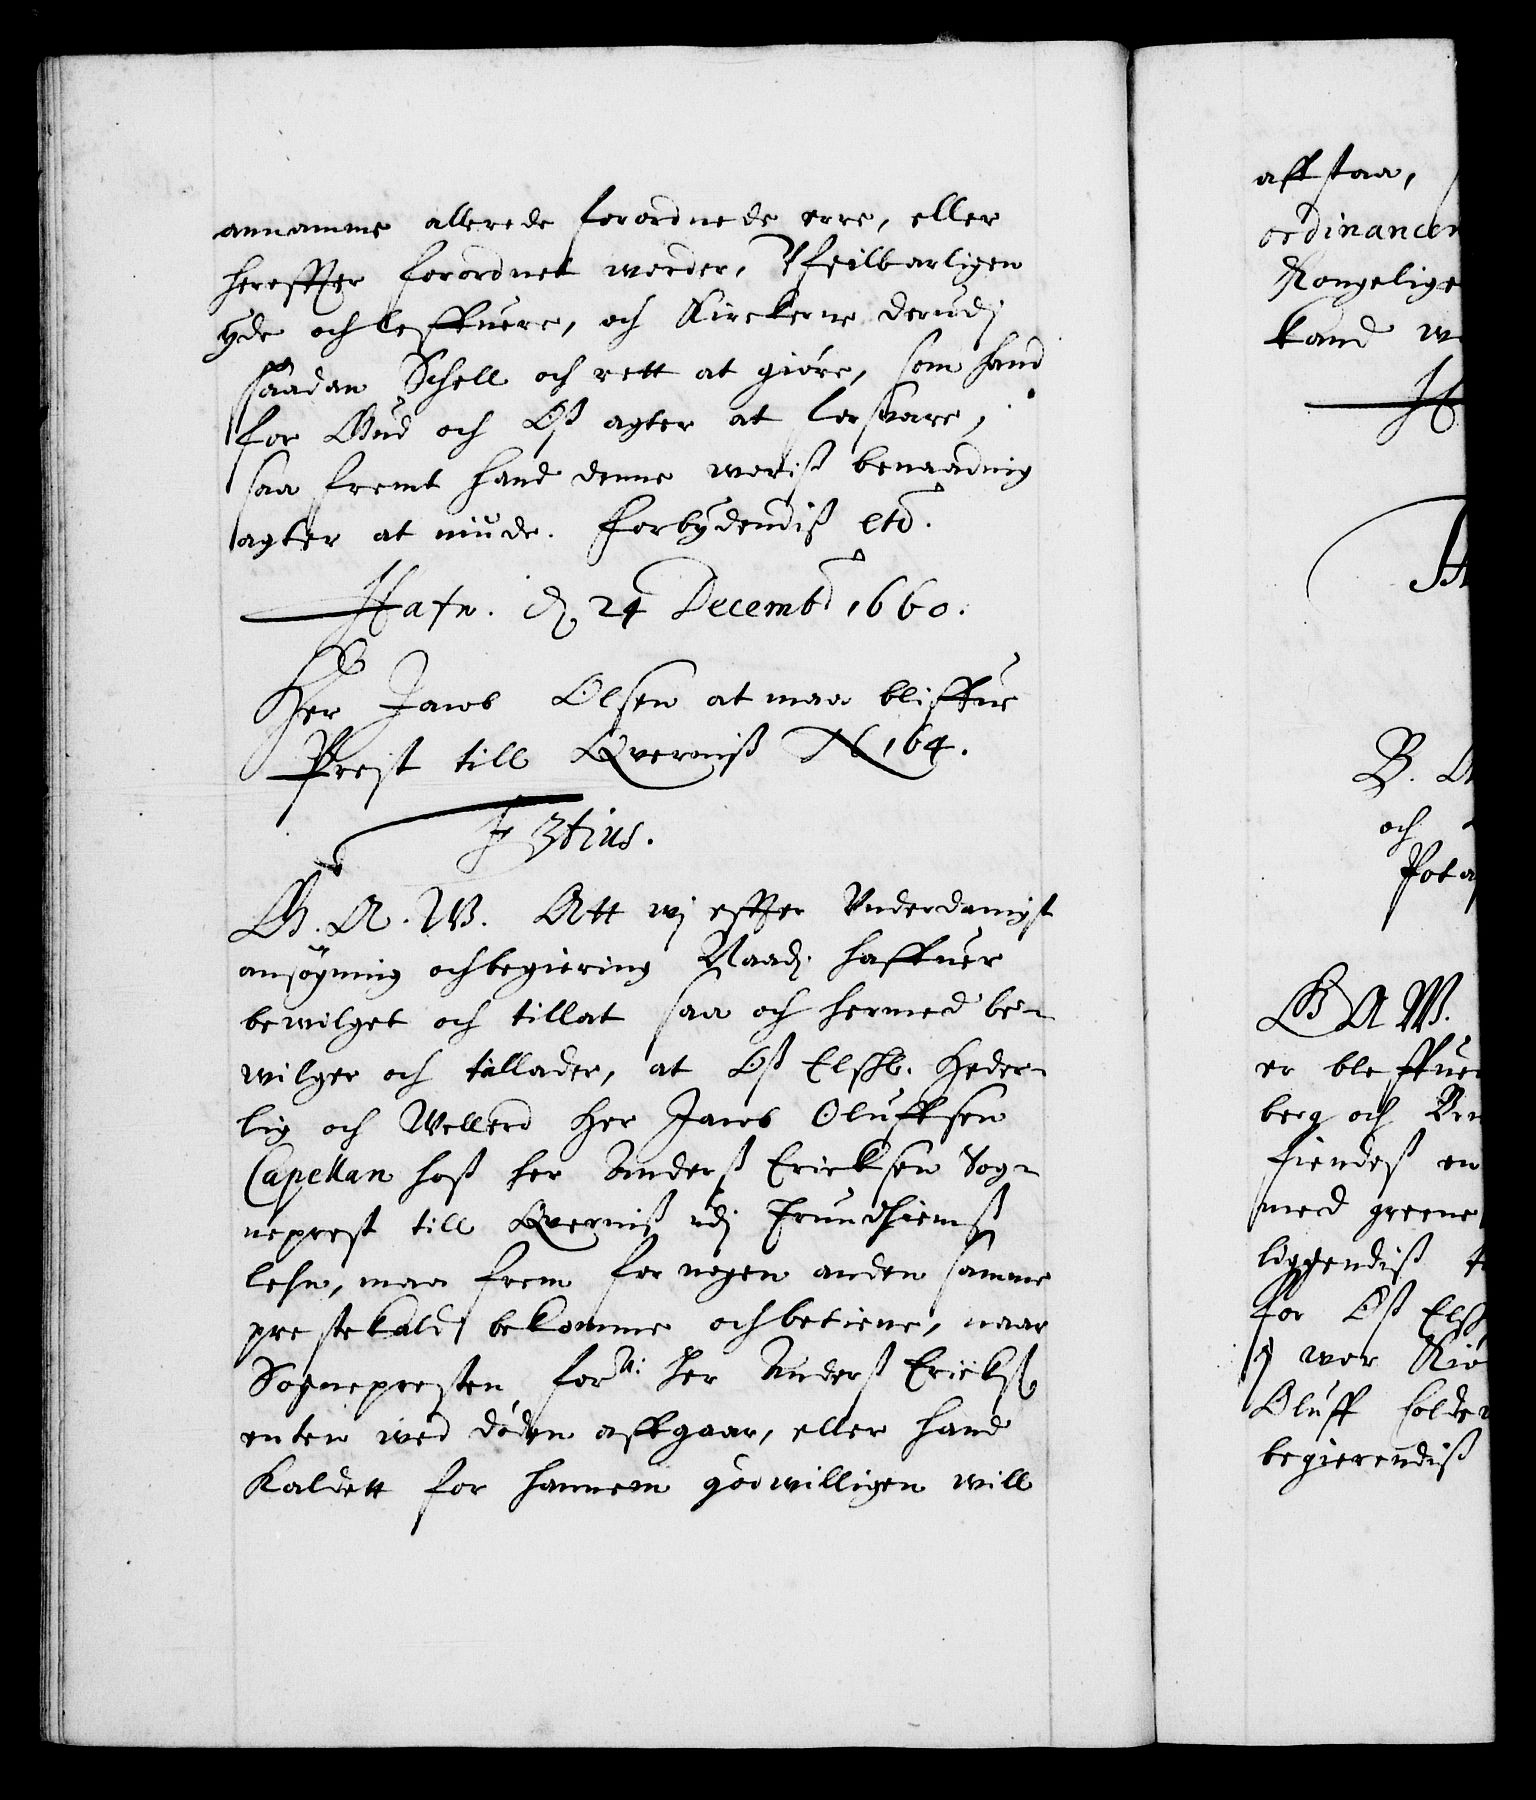 annamme allerede forordnede erre, eller
herefftter forordnet worder, Vfeilbarligen
yde och lefftuere, och Kirckerne derudj
saadan Schell och rett at giöre, som hand
for Gud och Oß agter at forsvare,
saa fremt hand denne woris benaadnig
agter at niude. Forbydendiß etc.
Hafn. d. 24 Decemb. 1660.
Her Jacob Olsen at maa bliffue
Prest till Qverniß N 164.
F 3tius.
G. A. W. Att wj effter Vnderdanigst
ansögning och begiering Naad. haffuer
bewilget och tillat saa och hermed be-
wilger och tillader, at Oß Elskl. Heder-
lig och Wellerd Her Jacob Oluffsen
Capellan hoß her Anderß Ericksen Sog-
neprest till Qverniß udj Trundhiemß
lehn, maa frem for nogen anden samme
prestekald bekomme och betiene, naar
Sognepresten for.ne her Anderß Ericks.
enten wed döden affgaar, eller hand
Kaldett for hannem godwilligen will
affstaa,
ordinancen
Kongelige
kand
H
B. A
och
Pota
G A W.
er bleffuen
berg och
fiendeß en
med greene
liggendiß
for Oß Elsk
wor
Oluff
begierendiß